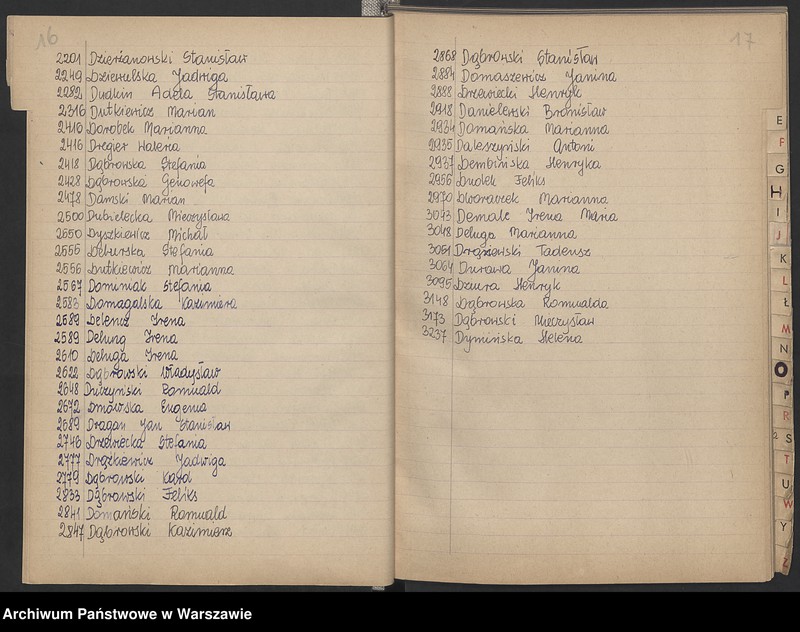 16
2201 Dzierżanowski Stanisław
2249 Dziewulska Jadwiga
2282 Dudkin Adela Stanisława
2316 Dutkiewicz Marian
2410 Dorobek Marianna
2416 Dregier Halena
2418 Dąbrowska Stefania
2428 Dąbrowska Genowefa
2478 Damski Marian
2500 Dubielecka Mieczysława
2550 Dyszkiewicz Michał
2555 Stefania
2556 Dutkiewicz Marianna
2567 Dominiak Stefania
2583 Domagalska Kazimiera
2589 Irena
2589 Delung Irena
2610 Deluga Irena
2622 Dąbrowski Władysław
2648 Duczyński Romuald
2672 Dmowska Eugenia
2689 Dragan Jan Stanisław
2746 Drzewiecka Stefania
2777 Drążkiewicz Jadwiga
2779 Dąbrowski Karol
2833 Dąbrowski Feliks
2841 Domański Romuald
2847 Dąbrowski Kazimierz
17
2868 Dąbrowski Stanisław
2884 Domaszewicz Janina
2888 Drzewiecki Henryk
2918 Danielewski Bronisław
2934 Domańska Marianna
2935 Daleszyński Antoni
2937 Dembińska Henryka
2956 Dudek Feliks
2970 Dworaczek Marianna
3043 Demale Irena Maria
3048 Deluga Marianna
3051 Drążewski Tadeusz
3064 Durawa Janina
3095 Dziura Henryk
3148 Dąbrowska Romualda
3173 Dąbrowski Mieczysław
3237 Dymińska Helena
E
F
G
H
I
J
K
L
Ł
M
N
O
P
R
S
T
U
W
Y
Z
Archiwum Państwowe w Warszawie